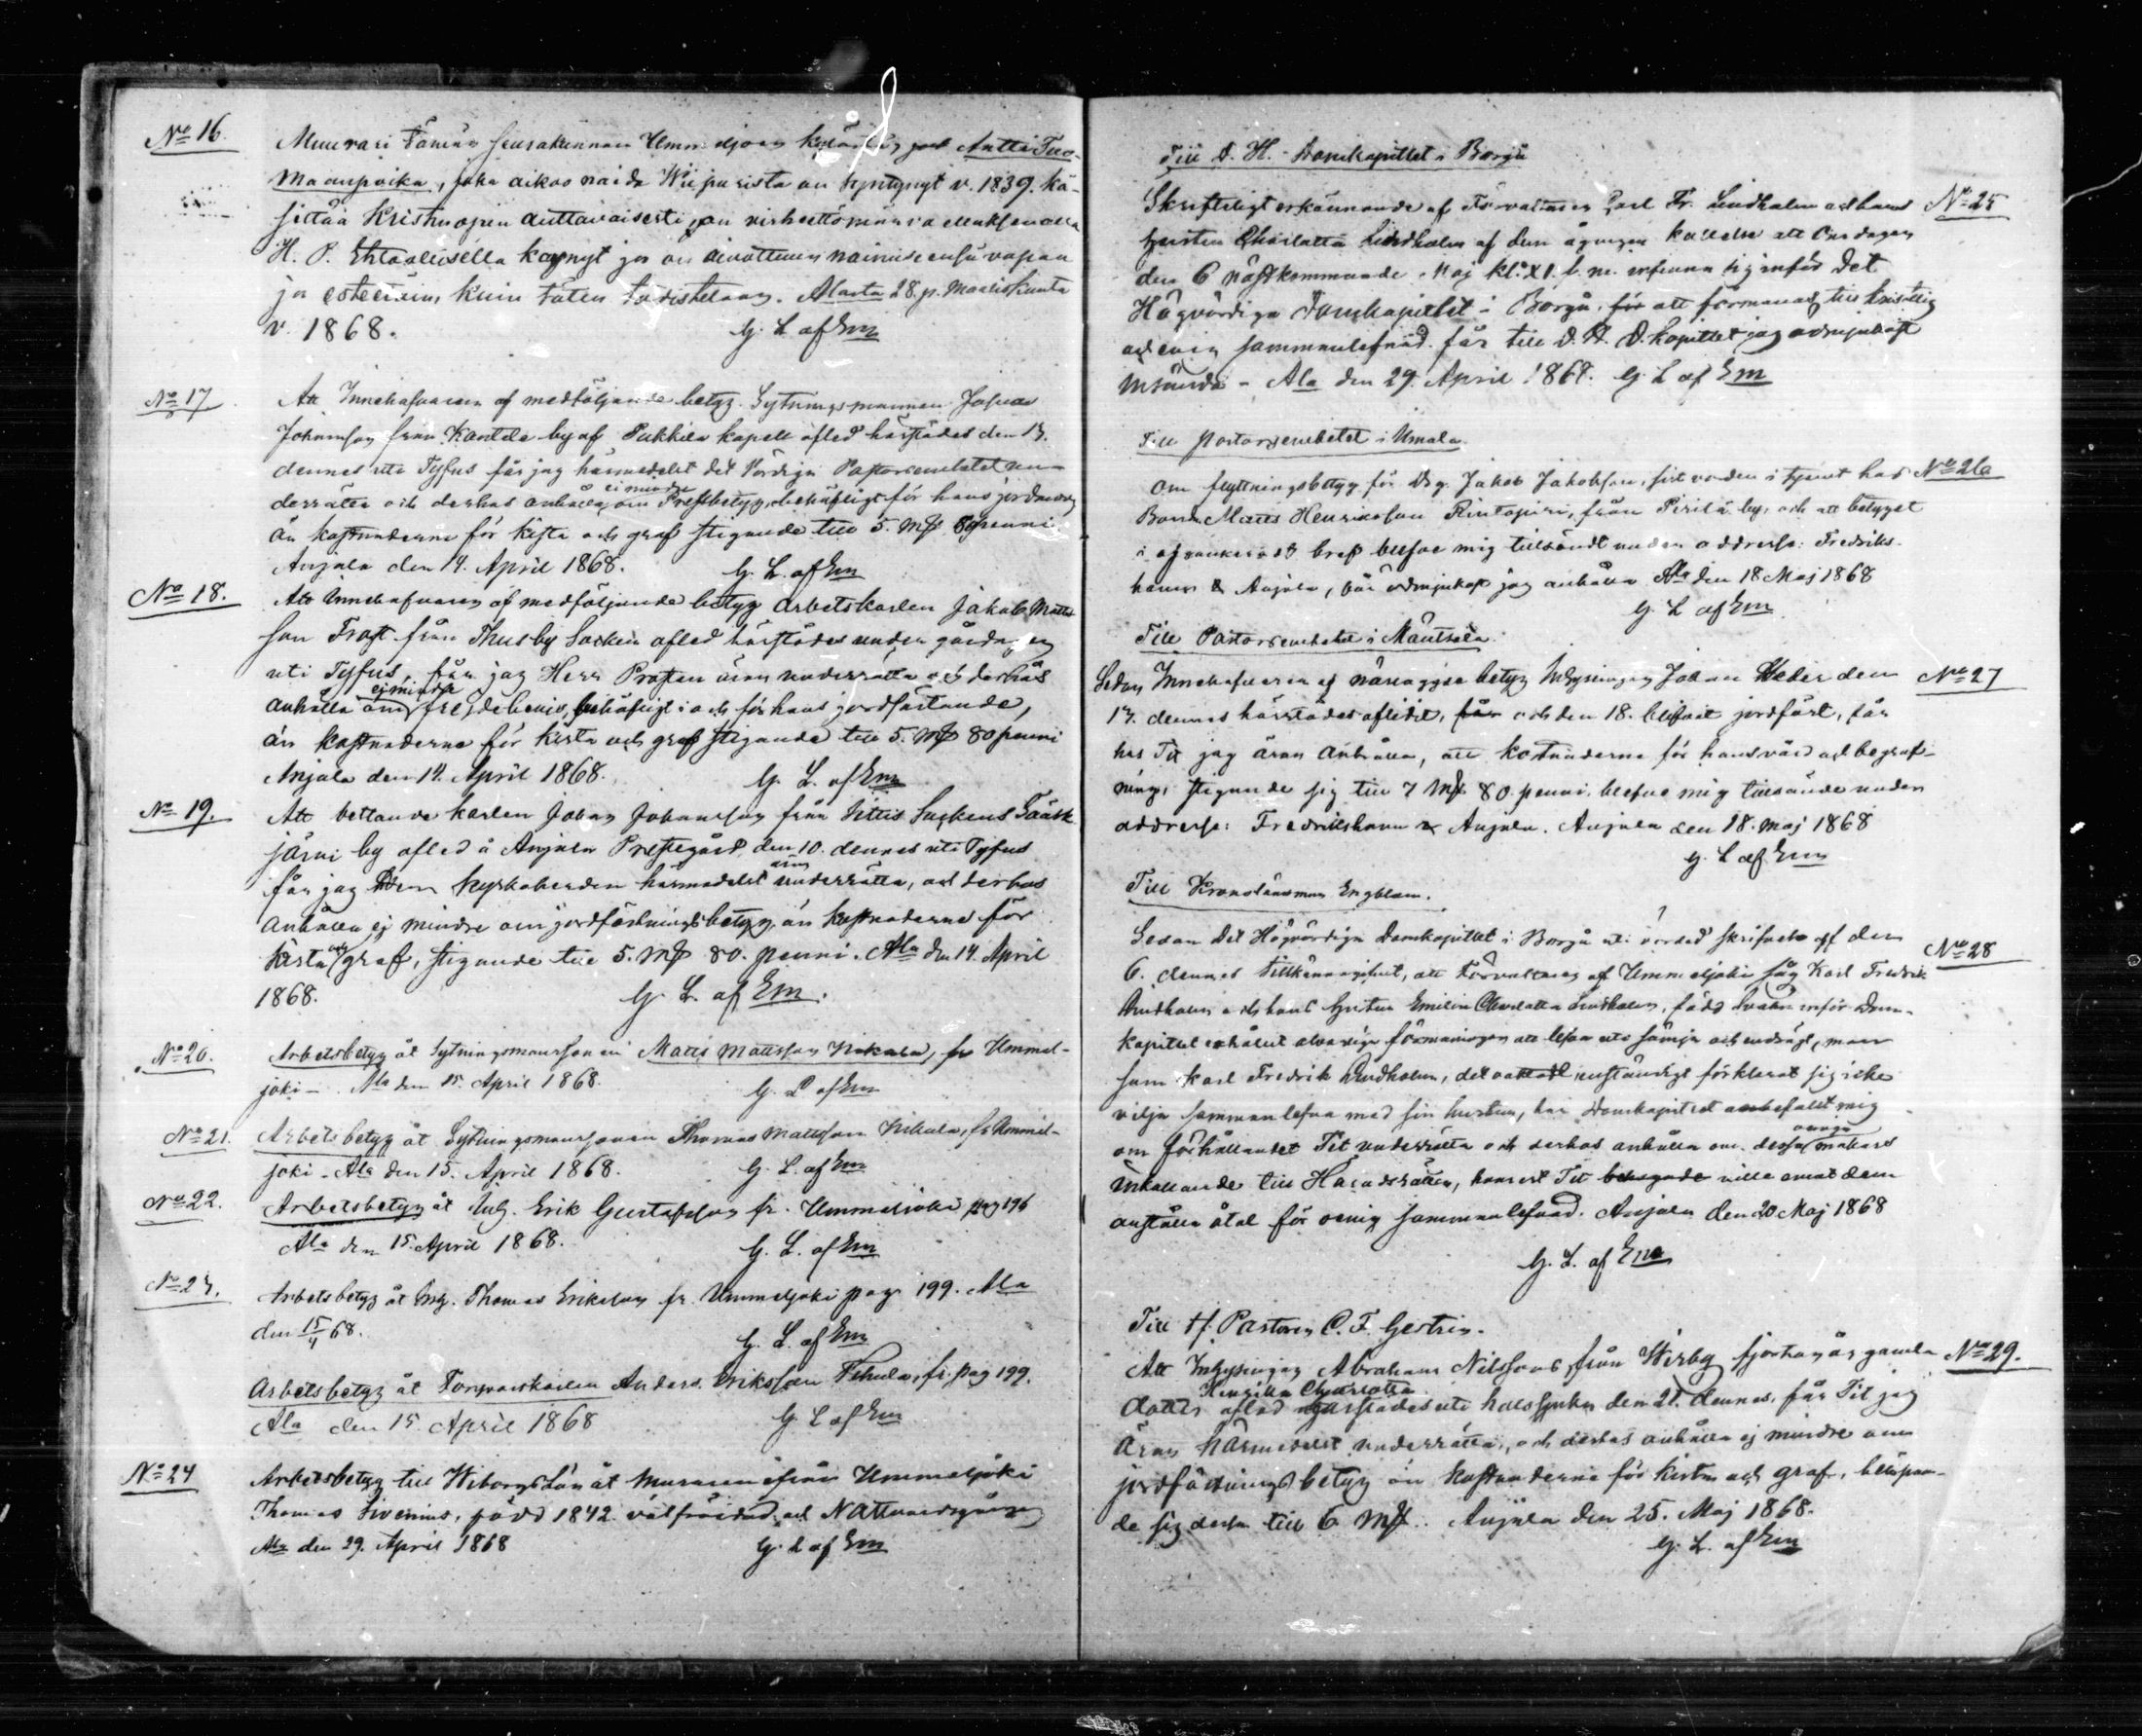 No 16.
Muurari Tämän seurakunnan Ummeljoen Antti Tuo-
maanpoika, joka aikoo naida Wiipurista on syntynyt v. 1839. Kä-
sittää Kristinopin auttavaisesti, on
H. P. Ehtoollisella käynyt ja on naimiseensa vapaa
ja esteetöin, kuin täten todistetaan. Alasta 28. p. Maaliskuuta
v. 1868. G. L. af Em
No 17
Att Innehafvaren af medföljande betyg Sytningsmannen Josua
Johansson från Kantele by af Pukkila kapell afled härstädes den 13.
dennes uti Tyfus får jag härmedelst det Vördiga Pastorsembetet un-
derrätta och derhos anhålla ei mindre om Prestbetyg, behöfligt för hans jordande
än kostnaderna för kista och graf stigande till 5. mk 80 penni
Anjala den 14. April 1868. G. L. af Em
No 18.
Att Innehafvaren af medföljande betyg arbetskarlen Jakob Matts
son Frost från Thusby Socken afled härstädes under gårdagen
uti Tyfus, får jag Herr Prosten äran underrätta och derhos
anhålla ej mindre om frejdebevis, behöfligt i och för hans jordfästande,
än kostnaderna för kista och graf stigande till 5. mk 80 penni
Anjala den 14. April 1868. G. L. af Em
No 19.
Att bettande karlen Johan Johansson från Sittis Sockens Sääsk
järvi by afled å Anjala Prestegård den 10. dennes uti Tyfus
får jag Herr Kyrkoherden härmedelst äran underrätta, och derhos
anhålla ej mindre om jordfästningsbetyg än kostnaderna för
kista och graf, stigande till 5. mk 80. penni. Ala den 14. April
1868. G. L. af Em.
No 20.
Arbetsbetyg åt Sytningsmanssonen Matts Mattsson Nikula, fr Ummel-
joki – Ala den 15. April 1868. G. L af Em
No 21.
Arbetsbetyg åt Sytningsmanssonen Thomas Mattsson Nikula, fr Ummel-
joki – Ala den 15. April 1868. G. L. af Em
No 22.
Arbetsbetyg åt Erik Gustafsson fr. Ummeljoki pag 196
Ala den 15. April 1868. G. L. af Em
No 23.
Arbetsbetyg åt Thomas Eriksson fr. Ummeljoki pag 199. Ala
den 15/4 68. G. L. af Em
Arbetsbetyg åt Torparekarlen Anders Eriksson fr. pag 199.
Ala den 15. April 1868 G. L af Em
No 24
Arbetsbetyg till Wiborgs Län åt Muraren ifrån Ummeljoki
Thomas Sivenius, född 1842 välfräjdad och Nattvardsgången
Ala den 29. April 1868 G. L af Em
Till D. H. Domkapitlet i Borgå
No 25
Skriftligt erkännande af Förvaltaren Carl Fr. Lindholm och hans
hustru Charlotta Lindholm af den kallelse att Onsdagen
den 6 nästkommande Maj kl. XI. f. m. infinna sig inför Det
Högvördiga Domkapitlet i Borgå, för att förmanas till kristlig
och enig sammanlefnad får till D. H. D. kapitlet jag ödmjukast
insända – Ala den 29. April 1868. G. L af Em
Till Pastorsembetet i Umala
No 26
Om flyttningsbetyg för Drg. Jakob Jakobsson, sist varden i tjenst hos
Bonden Matts Henriksson Rintapiri, från Pirilä by, och att betyget
i ofrankeradt bref blefve mig tillsändt under addresse: Fredriks-
hamn & Anjala, får ödmjukast jag anhålla Ala den 18 Maj 1868
G. L af Em
Till Pastorsembetet i Mäntsälä
No 27
Sedan Innehafvaren af närlagde betyg Inhysingen Johan den
13. dennes härstädes aflidit, får och den 18. blifvit jordfäst, får
hos Tit jag äran anhålla, att kostnaderna för hans vård och begraf-
ning, stigande sig till 7 Mk. 80. penni, blefve mig tillsände under
addresse: Fredrikshamn & Anjala. Anjala den 18. maj 1868
G. L af Em
Till Kronolänsman Engblom.
No 28
Sedan Det Högvördiga Domkapitlet i Borgå uti skrifvelse af den
6. dennes tillkännagifvit, att Förvaltaren af Ummeljoki såg Karl Fredrik
Lindholm och hans hustru Emilia Charlotta Lindholm, född inför Dom-
kapitlet erhållit alvarliga förmaningar att lefva uti sämja och endrägt, men
som Karl Fredrik Lindholm, det oaktadt, enständigt förklarat sig icke
vilja sammanlefva med sin hustru, har Domkapitlet anbefallt mig
om förhållandet Tit underrätta och derhos anhålla om dessa oeniga makars
inkallande till Häradsrätten, hvarest Tit behagade ville emot dem
anställa åtal för oenig sammanlefnad. Anjala den 20 Maj 1868
G. L. af Em
Till H. Pastoren C. F. Gestrin.
No 29.
Att Inhysingen Abraham Nilssons från Wirby fjorton år gamla
dotter Henrika Charlotta afled härstädes uti halssjuka den 21. dennes, får Tit jag
äran härmedelst underrätta, och derhos anhålla ej mindre om
jordfästningsbetyg än kostnaderna för kista och graf, belöpan-
de sig dessa till 6 Mk. Anjala den 25. Maj 1868.
G. L. af Em